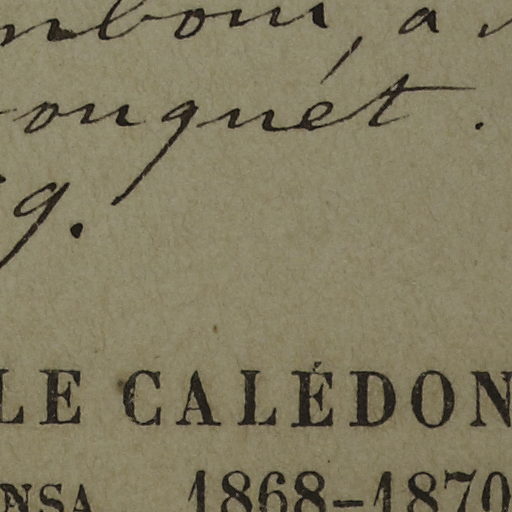 nboui, a
ouquét.
9.
LE CALÉDON
NSA 1868–1870